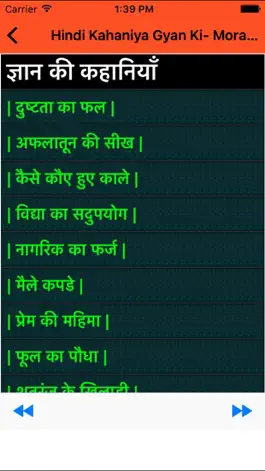 Carrier 1:39 PM
Hindi Kahaniya Gyan Ki- Mora...
ज्ञान की कहानियाँ
| दुष्टता का फल |
| अफलातून की सीख |
| कैसे कौए हुए काले |
| विद्या का सदुपयोग |
| नागरिक का फर्ज |
| मैले कपडे |
| प्रेम की महिमा |
| फूल का पौधा |
| शतरंज के खिलाड़ी |